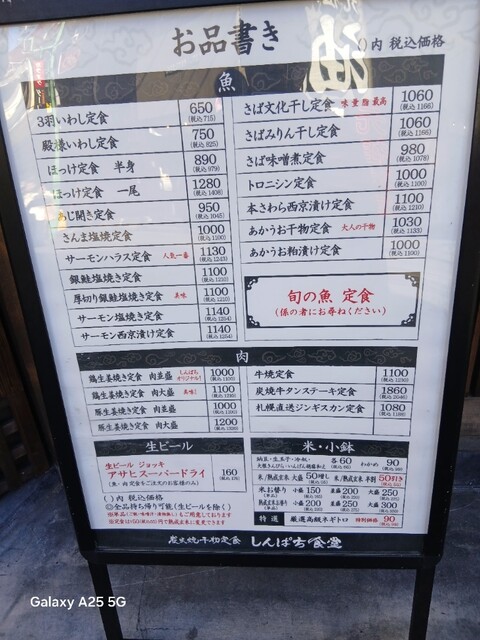 お品書き
( )内 税込価格
魚
3羽いわし定食 650 (税込 715)
殿様いわし定食 750 (税込 825)
ほっけ定食 半身 890 (税込 979)
ほっけ定食 一尾 1280 (税込 1408)
あじ開き定食 950 (税込 1045)
さんま塩焼定食 1000 (税込 1100)
サーモンハラス定食 人気一番 1130 (税込 1243)
銀鮭塩焼き定食 1100 (税込 1210)
厚切り銀鮭塩焼き定食 美味 1100 (税込 1210)
サーモン塩焼き定食 1140 (税込 1254)
サーモン西京漬け定食 1140 (税込 1254)
さば文化干し定食 味 重 脂 最高 1060 (税込 1166)
さばみりん干し定食 1060 (税込 1166)
さば味噌煮定食 980 (税込 1078)
トロニシン定食 1000 (税込 1100)
本さわら西京漬け定食 1100 (税込 1210)
あかうお干物定食 大人の干物 1030 (税込 1133)
あかうお粕漬け定食 1000 (税込 1100)
旬の魚 定食
(係の者にお尋ねください)
肉
鶏生姜焼き定食 肉並盛 しんぱちオリジナル! 1000 (税込 1100)
鶏生姜焼き定食 肉大盛 美味! 1100 (税込 1210)
豚生姜焼き定食 肉並盛 1000
豚生姜焼き定食 肉大盛 1200
牛焼定食 1100
炭焼牛タンステーキ定食 1860 (税込 2046)
札幌直送ジンギスカン定食 1080 (税込 1188)
生ビール
生ビール ジョッキ
アサヒスーパードライ 160 (税込 176)
(魚・肉定食をご注文のお客様のみ)
( )内 税込価格
◎全品持ち帰り可能(生ビールを除く)
米・小鉢
各60 わかめ 90
米/熟成玄米 大盛 50増し 米/熟成玄米 半割 50引き
米お替り 小盛 150 並盛 200 大盛 250
小盛 200 並盛 250 大盛 300
特選 厳選高級ネギトロ 特別価格 90
炭火焼干物定食 しんぱち食堂
Galaxy A25 5G